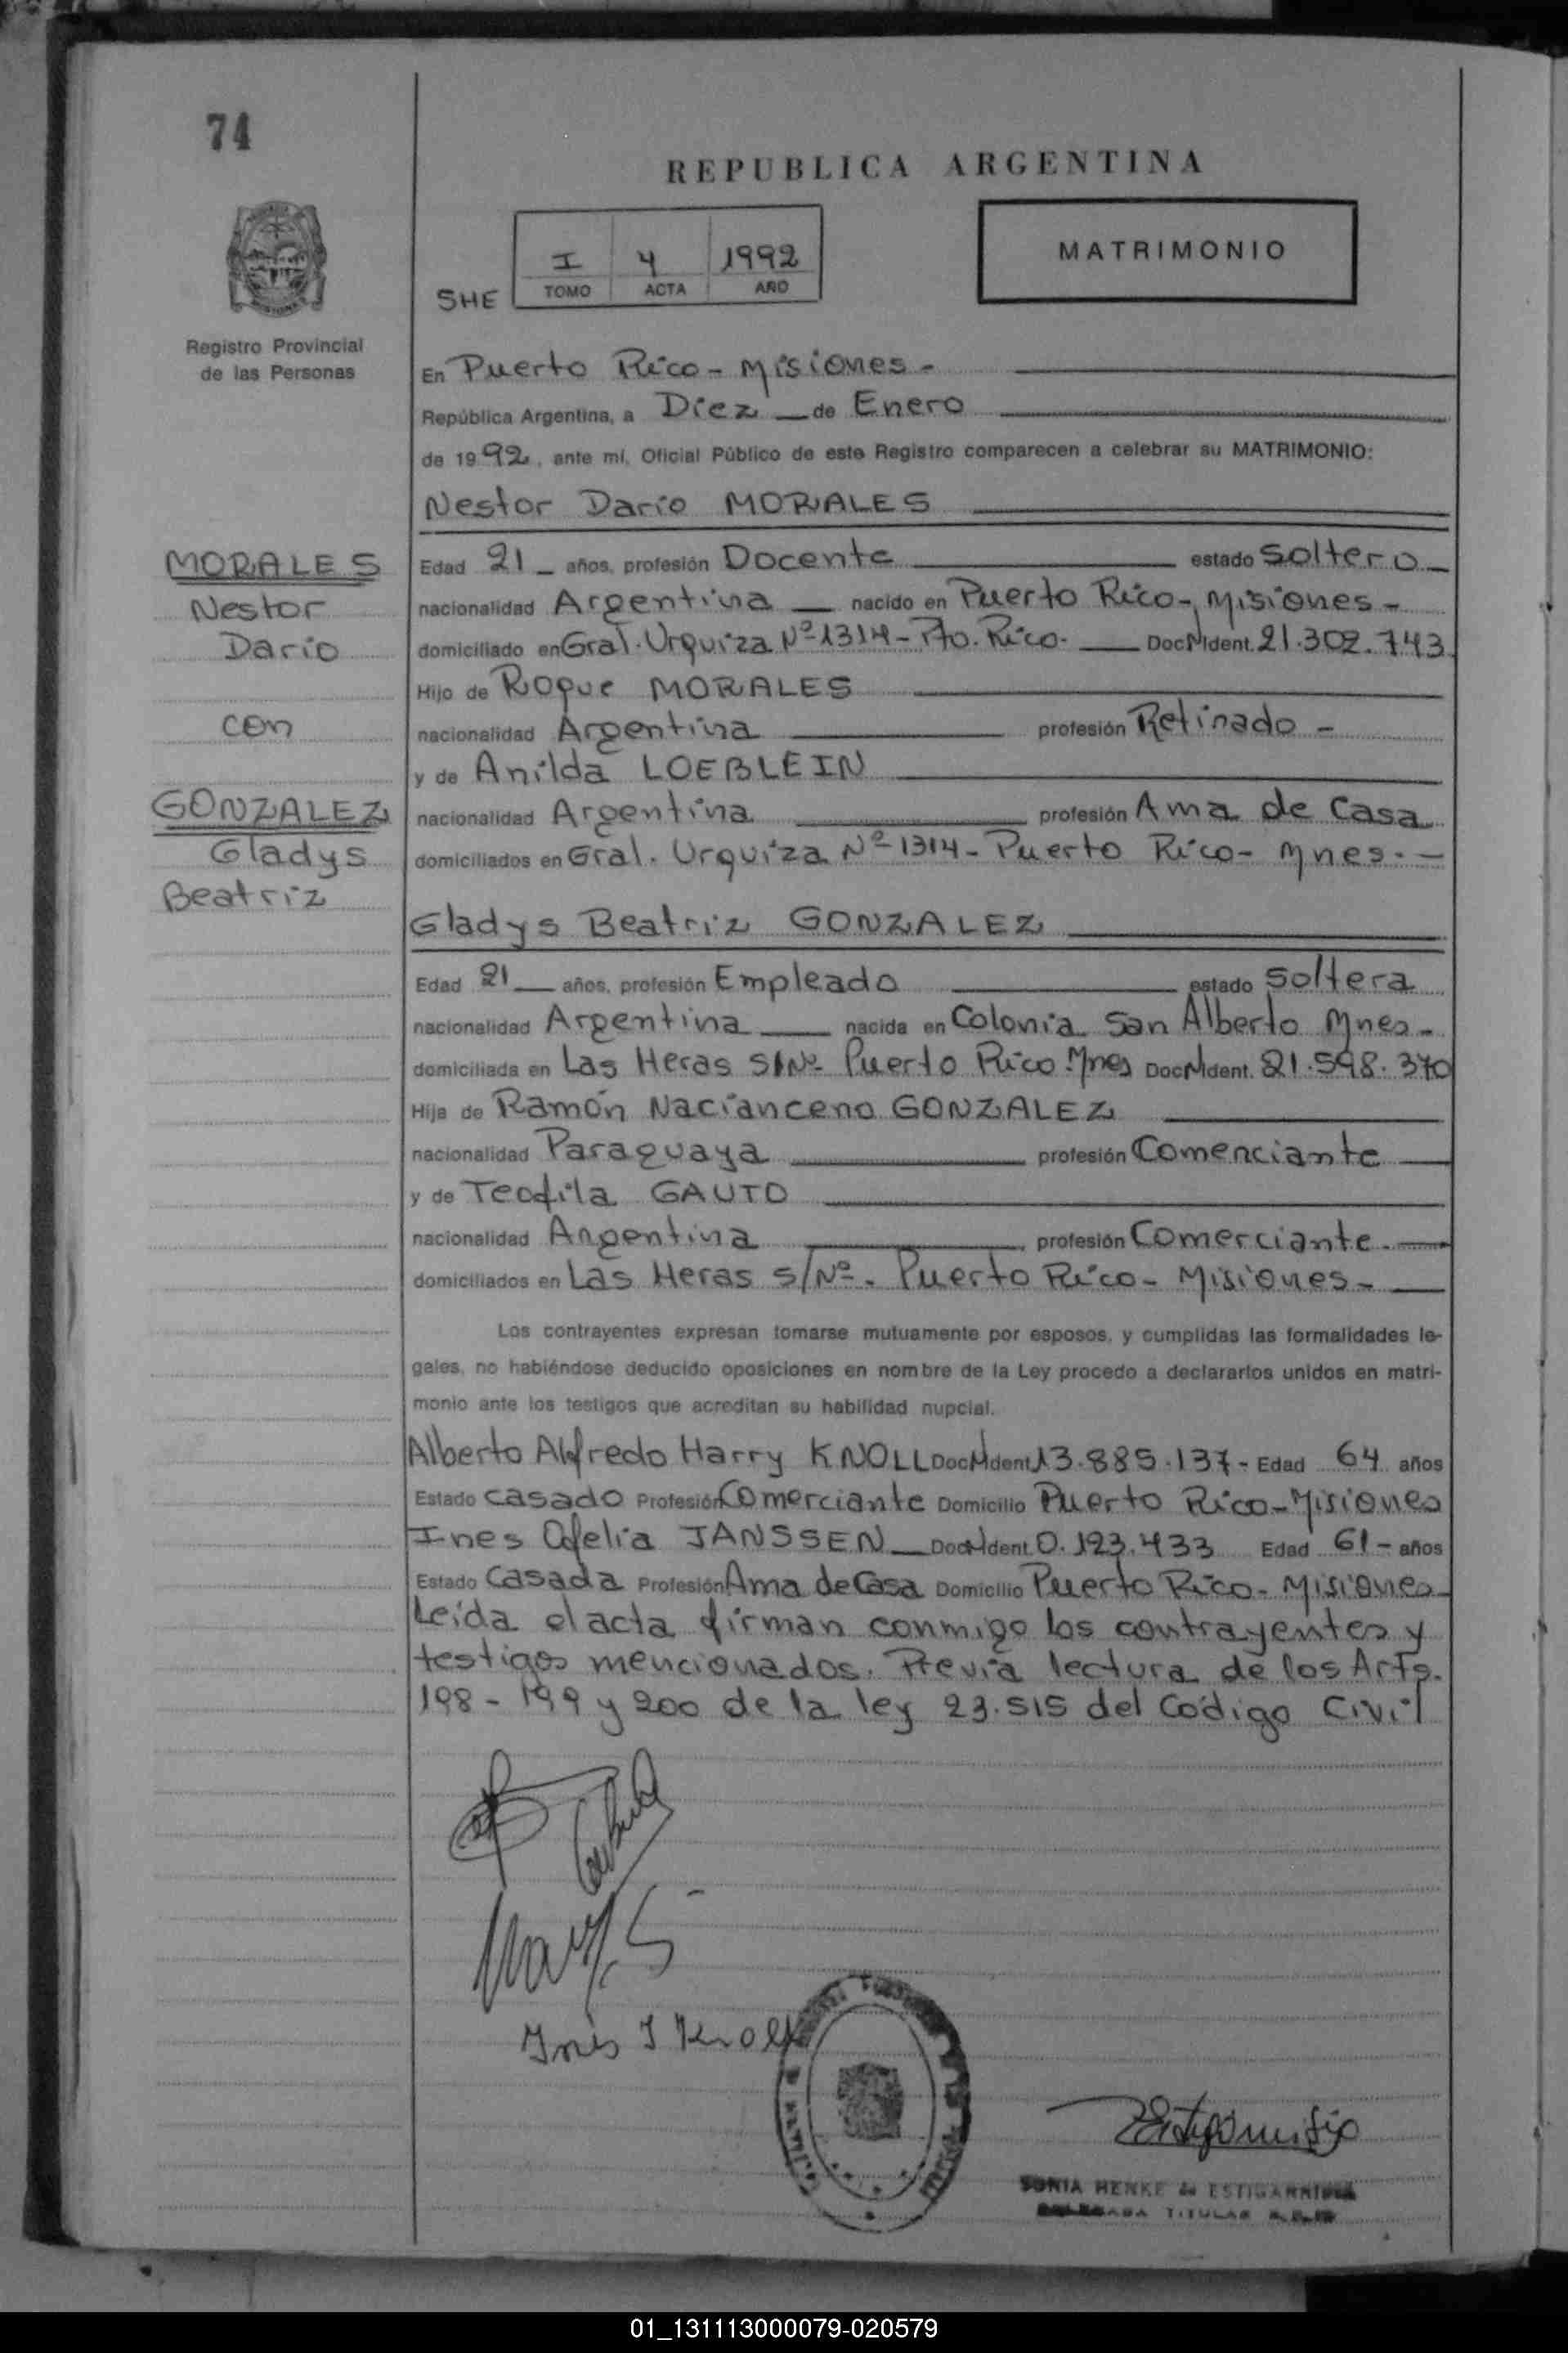 74
REPUBLICA ARGENTINA
MATRIMONIO
I 4 1992
SHE TOMO ACTA AÑO
Registro Provincial
de las Personas
En Puerto Rico - Misiones -
República Argentina, a Diez de Enero
de 1992, ante mí, Oficial Público de este Registro comparecen a celebrar su MATRIMONIO:
Nestor Dario MORALES
MORALES
Nestor
Dario
con
GONZALEZ
Gladys
Beatriz
Edad 21 años, profesión Docente estado Soltero
nacionalidad Argentina nacido en Puerto Rico - Misiones -
domiciliado en Gral. Urquiza Nº 1314 - Pto. Rico. Doc N Ident. 21.302.743
Hijo de Roque MORALES
nacionalidad Argentina profesión Retirado -
y de Anilda LOEBLEIN
nacionalidad Argentina profesión Ama de Casa
domiciliados en Gral. Urquiza Nº 1314 - Puerto Rico - Mnes. -
Gladys Beatriz GONZALEZ
Edad 21 años, profesión Empleado estado Soltera
nacionalidad Argentina nacida en Colonia San Alberto Mnes -
domiciliada en Las Heras S/Nº Puerto Rico - Mnes Doc N Ident. 21.598.370
Hija de Ramón Nacianceno GONZALEZ
nacionalidad Paraguaya profesión Comerciante
y de Teofila GAUTO
nacionalidad Argentina profesión Comerciante.
domiciliados en Las Heras s/Nº. Puerto Rico - Misiones -
Los contrayentes expresan tomarse mutuamente por esposos, y cumplidas las formalidades le-
gales, no habiéndose deducido oposiciones en nombre de la Ley procedo a declararlos unidos en matri-
monio ante los testigos que acreditan su habilidad nupcial.
Alberto Alfredo Harry KNOLL Doc N Ident 13.885.137 - Edad 64 años
Estado Casado Profesión Comerciante Domicilio Puerto Rico - Misiones
Ines Ofelia JANSSEN Doc N Ident 0.123.433 Edad 61 - años
Estado Casada Profesión Ama de Casa Domicilio Puerto Rico - Misiones
Leída el acta firman conmigo los contrayentes y
testigos mencionados. Previa lectura de los Arts.
198 - 199 y 200 de la ley 23.515 del Código Civil
Inés J Knoll
SONIA HENKE de ESTIGARRIBIA
TITULAR
01_131113000079-020579